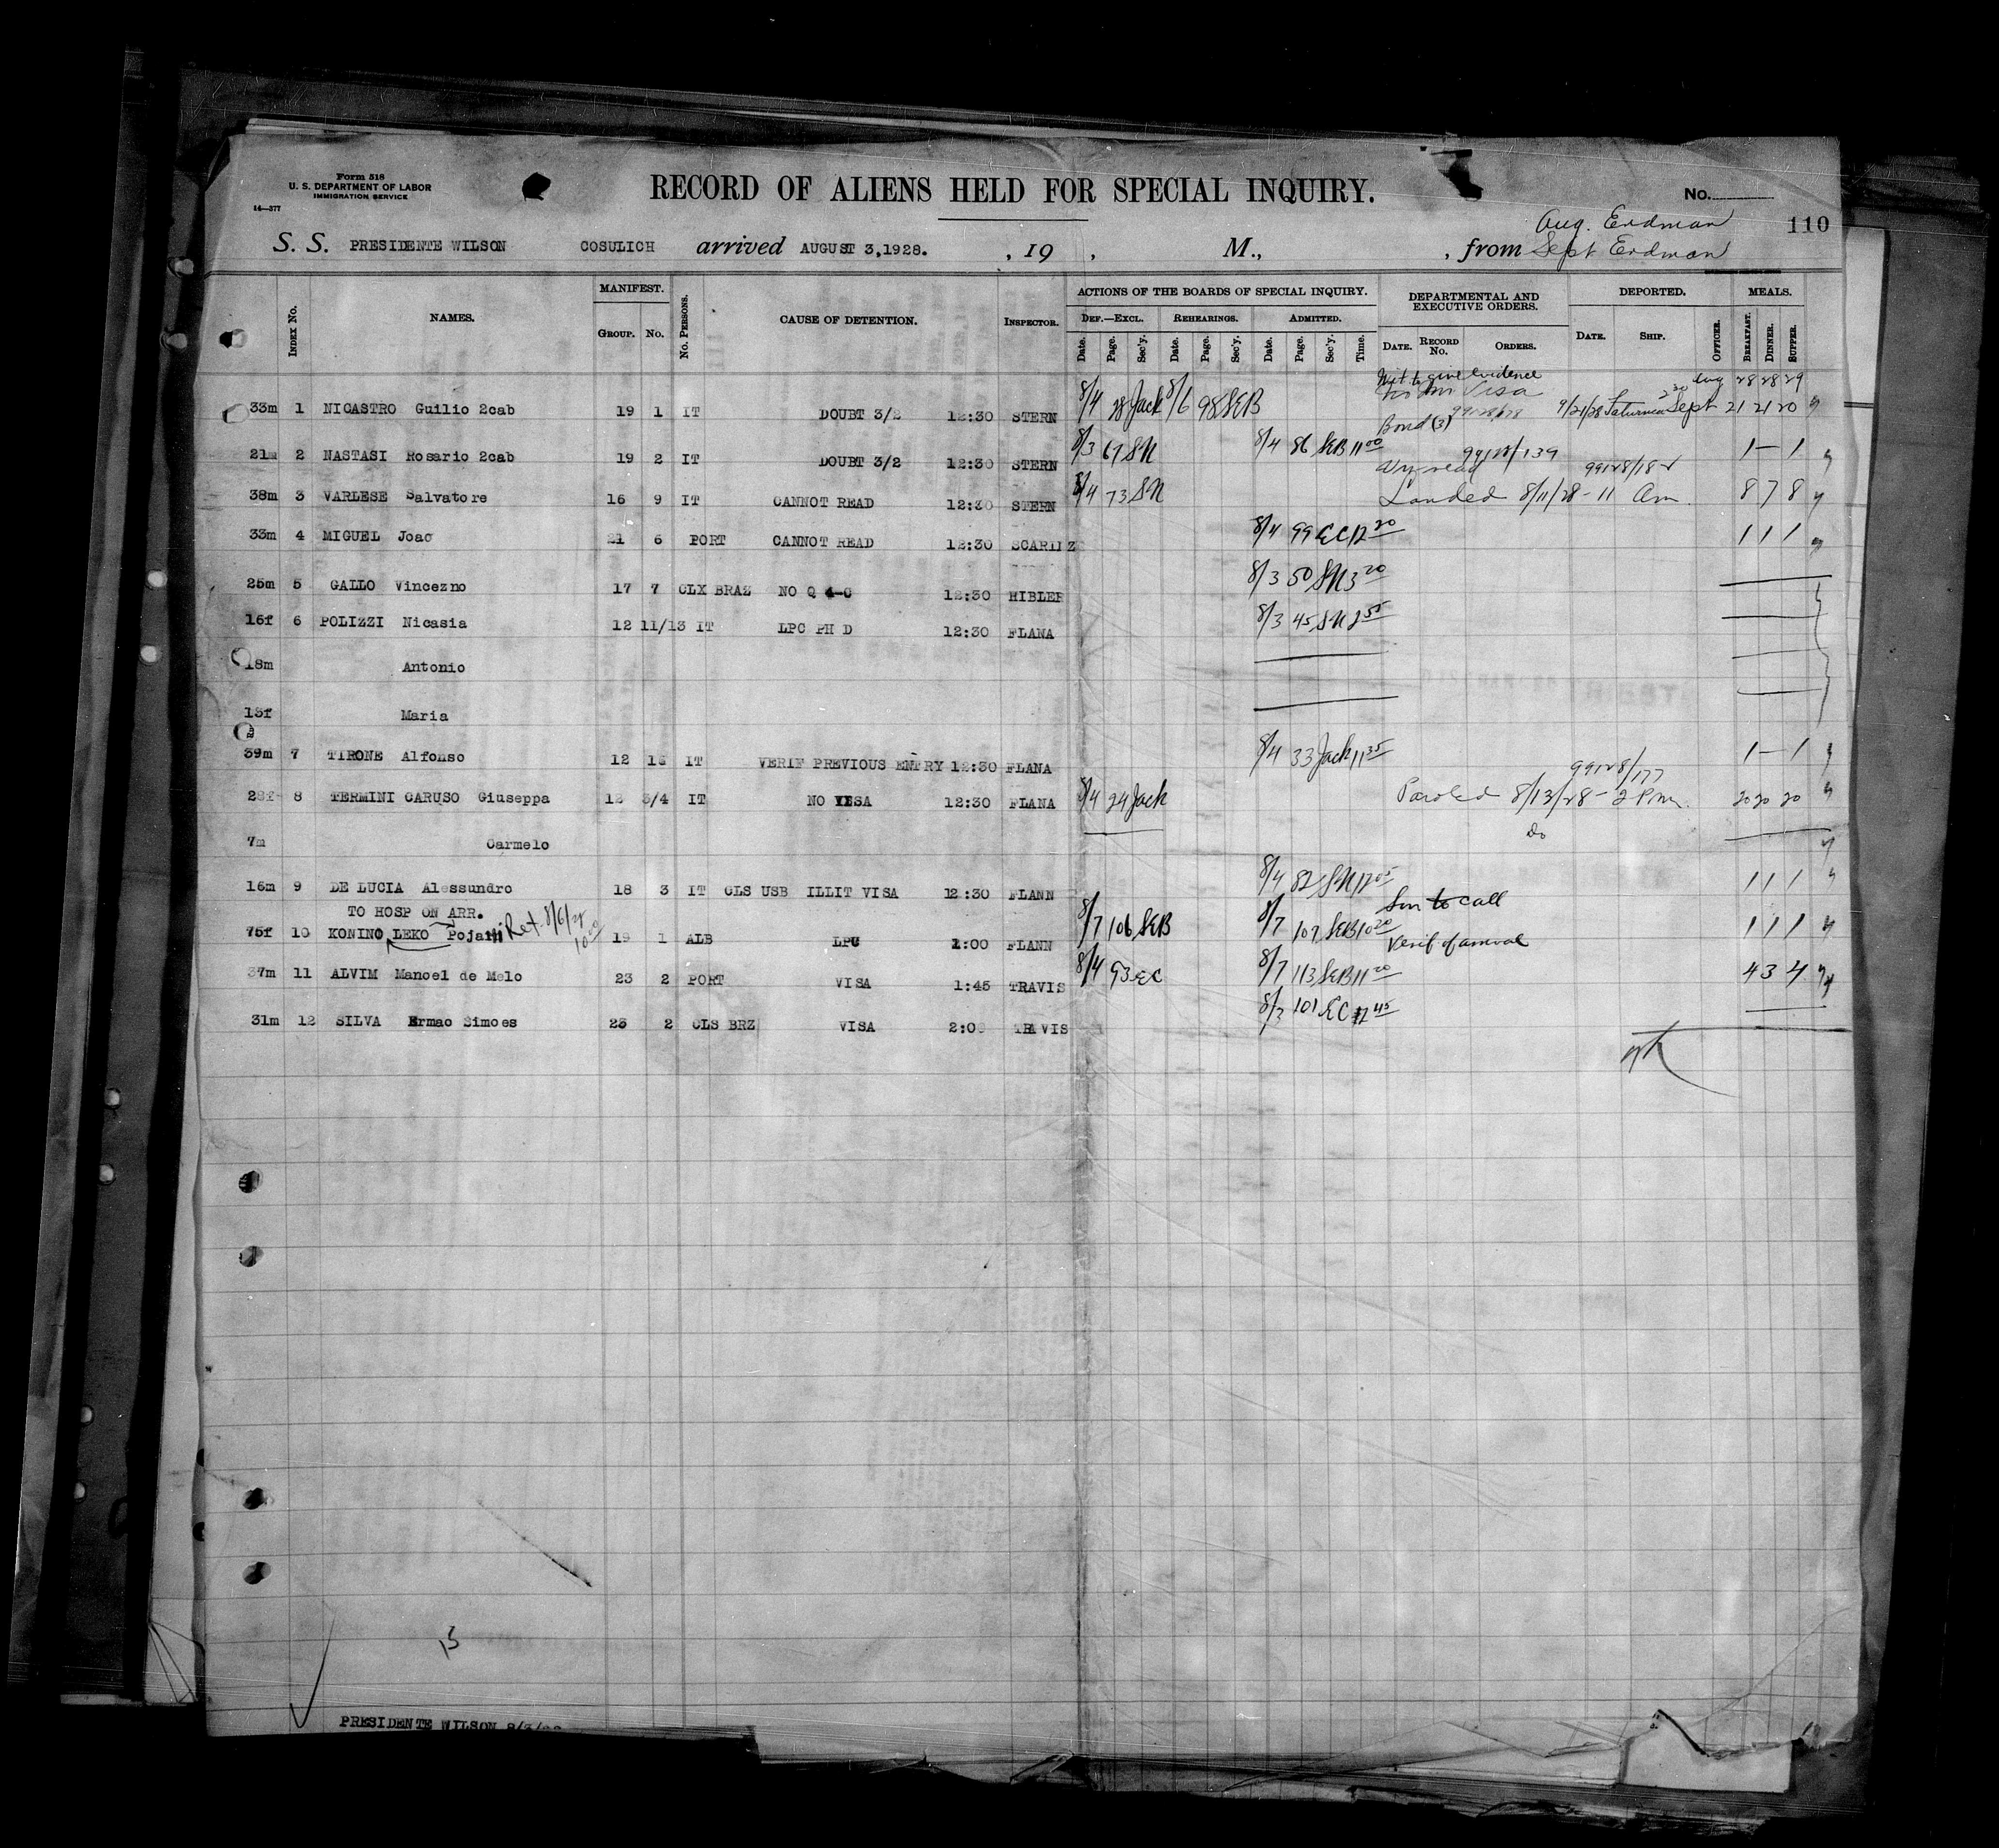 Form 518
U. S. DEPARTMENT OF LABOR
IMMIGRATION SERVICE
14—377
RECORD OF ALIENS HELD FOR SPECIAL INQUIRY.
No.
110
Aug. Erdman
S. S. PRESIDENTE WILSON COSULICH arrived AUGUST 3,1928. , 19 , M., , from Sept Erdman
Index No. NAMES. MANIFEST. Group. No. No. Persons. CAUSE OF DETENTION. Inspector. ACTIONS OF THE BOARDS OF SPECIAL INQUIRY. DEPARTMENTAL AND EXECUTIVE ORDERS. DEPORTED. MEALS.
Def.—Excl. Rehearings. Admitted.
Date. Page. Sec'y. Date. Page. Sec'y. Date. Page. Sec'y. Time. Date. Record No. Orders. Date. Ship. Officer. Breakfast. Dinner. Supper.
Wit to give evidence Aug 28 28 29
Visa
33m 1 NICASTRO Guilio 2cab 19 1 IT DOUBT 3/2 12:30 STERN 8/4 28 Jack 8/6 98 SEB 9/21/28 Saturnia Sept 21 21 20
Bond (3)
21m 2 NASTASI Rosario 2cab 19 2 IT DOUBT 3/2 12:30 STERN 8/3 67 SN 8/4 86 SEB 11 00 99128/139 1 — 1
99128/182
38m 3 VARLESE Salvatore 16 9 IT CANNOT READ 12:30 STERN 8/4 73 SN Landed 8/11/28 - 11 Am 8 7 8
33m 4 MIGUEL Joao 21 6 PORT CANNOT READ 12:30 8/4 99 EC 12 20 1 1 1
25m 5 GALLO Vincezno 17 7 CLX BRAZ NO Q 4-C 12:30 HIBLER 8/3 50 SN 3 20
16f 6 POLIZZI Nicasia 12 11/13 IT LPC PH D 12:30 FLANA 8/3 45 SN 2 55
18m Antonio
13f Maria
39m 7 TIRONE Alfonso 12 15 IT VERIF PREVIOUS ENTRY 12:30 FLANA 8/4 33 Jack 11 35 1 — 1
99128/177
28f 8 TERMINI CARUSO Giuseppa 12 3/4 IT NO VISA 12:30 FLANA 8/4 24 Jack Paroled 8/13/28 - 2 Pm. 20 20 20
7m Carmelo do
16m 9 DE LUCIA Alessundro 18 3 IT CLS USB ILLIT VISA 12:30 FLANN 8/4 82 SN 12 05 1 1 1
TO HOSP ON ARR. Son to call
75f 10 KONINO LEKO Pojani Ret. 8/6/28 10 00 19 1 ALB LPC 1:00 FLANN 8/7 106 SEB 8/7 107 SEB 10 20 1 1 1
Verif of arrival
37m 11 ALVIM Manoel de Melo 23 2 PORT VISA 1:45 TRAVIS 8/4 93 EC 8/7 113 SEB 11 20 4 3 4
31m 12 SILVA Ermao Simoes 23 2 CLS BRZ VISA 2:00 TRAVIS 8/3 101 EC 12 45
15
PRESIDENTE WILSON 8/3/28